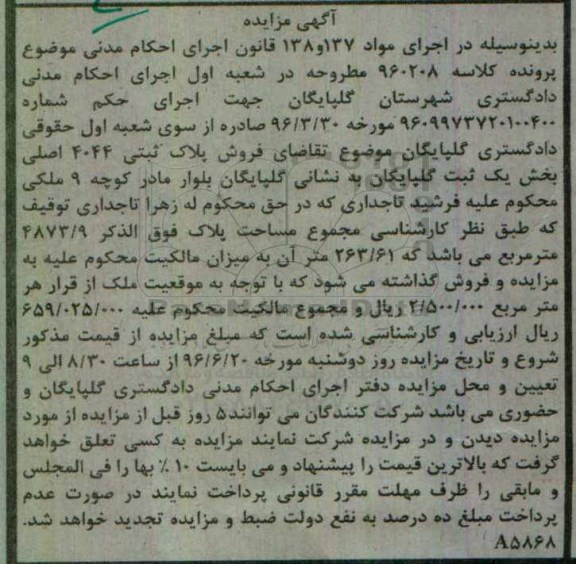 آگهی مزایده
بدینوسیله در اجرای مواد ۱۳۷و۱۳۸ قانون اجرای احکام مدنی موضوع
پرونده کلاسه ۹۶۰۲۰۸ مطروحه در شعبه اول اجرای احکام مدنی
دادگستری شهرستان گلپایگان جهت اجرای حکم شماره
۹۶۰۹۹۷۳۷۲۰۱۰۰۴۰۰ مورخه ۹۶/۳/۳۰ صادره از سوی شعبه اول حقوقی
دادگستری گلپایگان موضوع تقاضای فروش پلاک ثبتی ۴۰۴۴ اصلی
بخش یک ثبت گلپایگان به نشانی گلپایگان بلوار مادر کوچه ۹ ملکی
محکوم علیه فرشید تاجداری که در حق محکوم له زهرا تاجداری توقیف
که طبق نظر کارشناسی مجموع مساحت پلاک فوق الذکر ۴۸۷۳/۹
مترمربع می باشد که ۲۶۳/۶۱ متر آن به میزان مالکیت محکوم علیه به
مزایده و فروش گذاشته می شود که با توجه به موقعیت ملک از قرار هر
متر مربع ۲/۵۰۰/۰۰۰ ریال و مجموع مالکیت محکوم علیه ۶۵۹/۰۲۵/۰۰۰
ریال ارزیابی و کارشناسی شده است که مبلغ مزایده از قیمت مذکور
شروع و تاریخ مزایده روز دوشنبه مورخه ۹۶/۶/۲۰ از ساعت ۸/۳۰ الی ۹
تعیین و محل مزایده دفتر اجرای احکام مدنی دادگستری گلپایگان و
حضوری می باشد شرکت کنندگان می توانند۵ روز قبل از مزایده از مورد
مزایده دیدن و در مزایده شرکت نمایند مزایده به کسی تعلق خواهد
گرفت که بالاترین قیمت را پیشنهاد و می بایست ۱۰ ٪ بها را فی المجلس
و مابقی را ظرف مهلت مقرر قانونی پرداخت نمایند در صورت عدم
پرداخت مبلغ ده درصد به نفع دولت ضبط و مزایده تجدید خواهد شد.
A۵۸۶۸